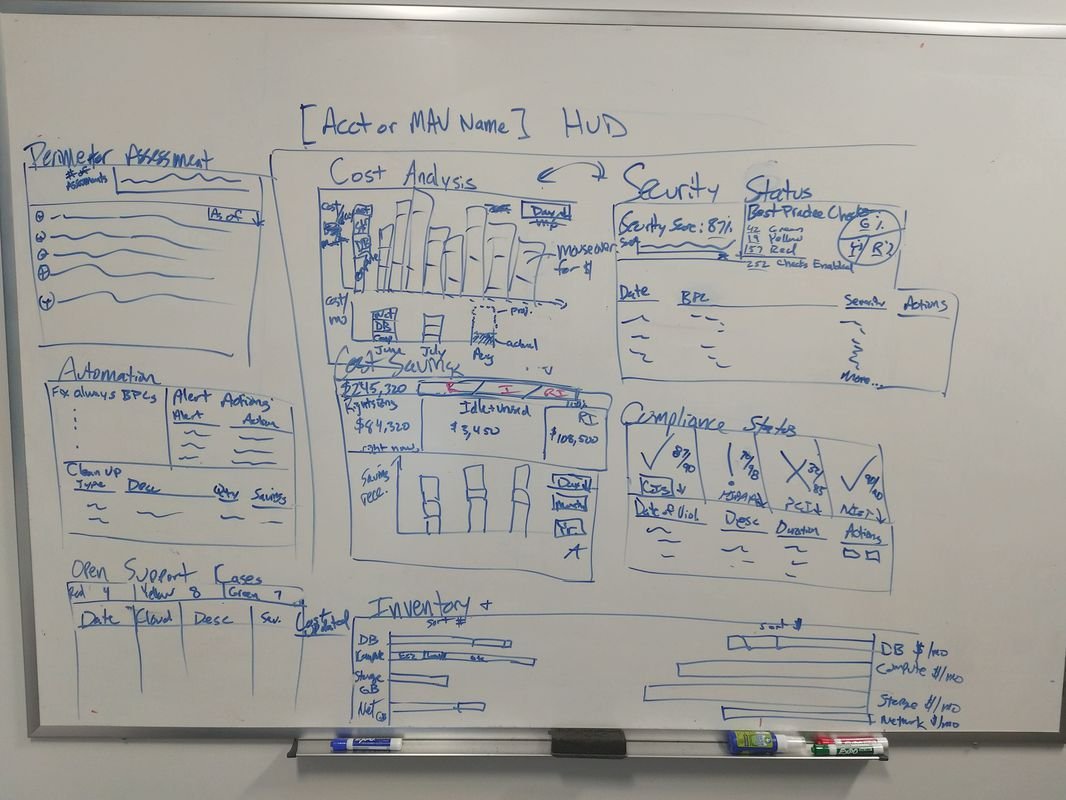 [Acct or MAV Name] HUD
Perimeter Assessment
# of
Assessments
As of
Automation
Fix always BPCs
Alert Actions
Alert Action
Clean up
Type Desc Qty Savings
Open Support Cases
Red 4 Yellow 8 Green 7
Date Cloud Desc Sev. Last
Updated
Cost Analysis
Cost/
DB
mouseover
for $
Cost/
mo
Net
DB
Comp
proj.
actual
June July Aug
Cost Savings
$245,320 R I RI
Rightsizing
$84,320
right now
Idle + Unused
$3,450
RI
$108,500
Savings
Security Status
Security Score: 87%
Best Practice Checks
42 Green
19 Yellow
157 Red
252 Checks Enabled
G%
Y% R%
Date BPC Severity Actions
More...
Compliance Status
87/90
CIS
HIPAA
PCI
NIST
Date of Viol. Desc Duration Actions
Inventory
sort #
DB
Compute EC2
Storage
GB
Net GB
sort $
DB $/mo
Compute $/mo
Storage $/mo
Network $/mo